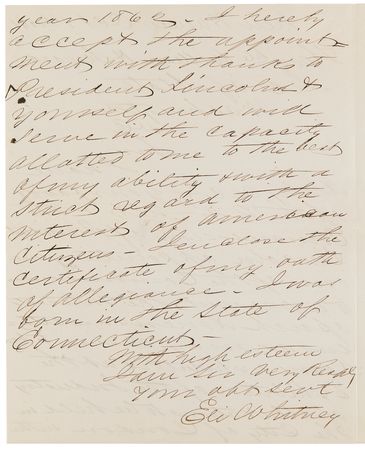 year 1862 - I hereby
accept the appoint=
ment with thanks to
President Lincoln &
yourself and will
serve in the capacity
allotted to me to the best
of my ability & with a
strict regard to the
interest of american
Citizens - I enclose the
certificate of my oath
of allegiance - I was
born in the State of
Connecticut -
With high esteem
I am Sir Very Respy
Your obt servt
Eli Whitney